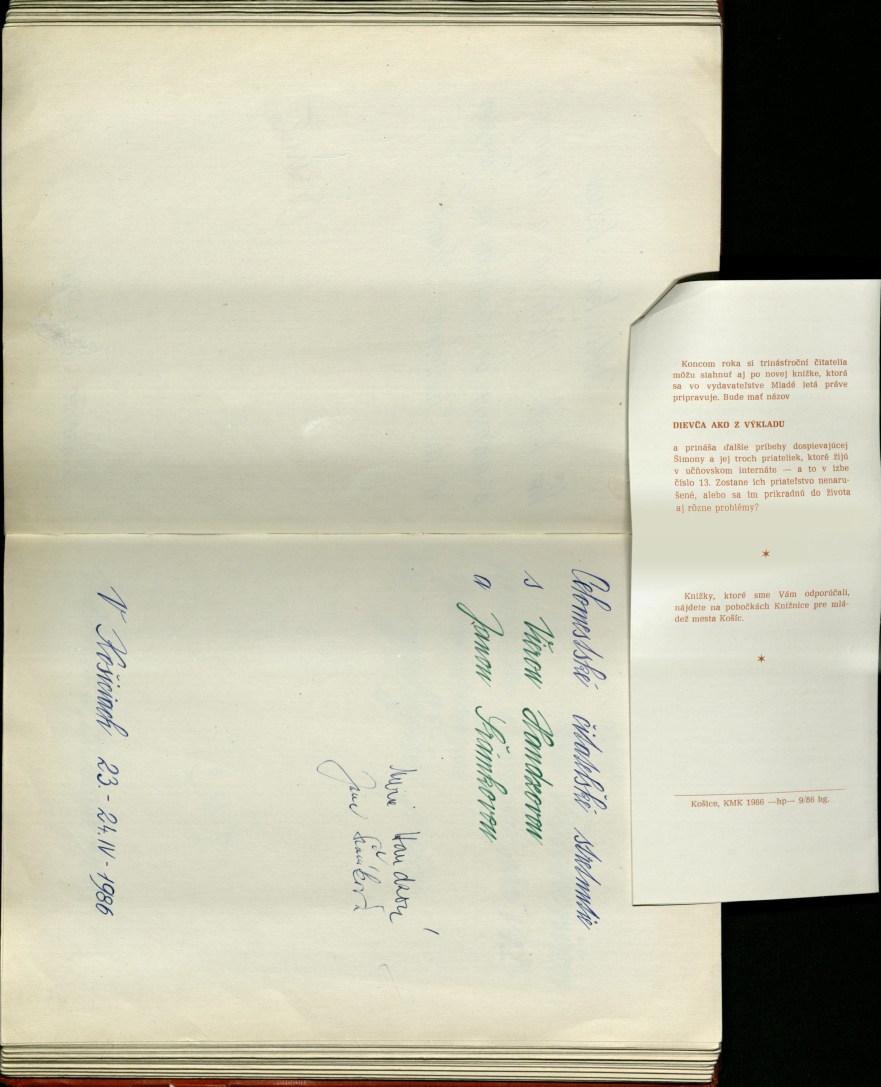 Celomestské čitateľské stretnutie
s Vierou Handzovou
a Janou Šrámkovou
Viera Handzová
Jana Šrámková
V Košiciach 23. - 24. IV - 1986
Koncom roka si trinásťroční čitatelia
môžu siahnuť aj po novej knižke, ktorá
sa vo vydavateľstve Mladé letá práve
pripravuje. Bude mať názov
DIEVČA AKO Z VÝKLADU
a prináša ďalšie príbehy dospievajúcej
Šimony a jej troch priateliek, ktoré žijú
v učňovskom internáte — a to v izbe
číslo 13. Zostane ich priateľstvo nenaru-
šené, alebo sa im prikradnú do života
aj rôzne problémy?
Knižky, ktoré sme Vám odporúčali,
nájdete na pobočkách Knižnice pre mlá-
dež mesta Košíc.
Košice, KMK 1986 —hp— 9/86 bg.